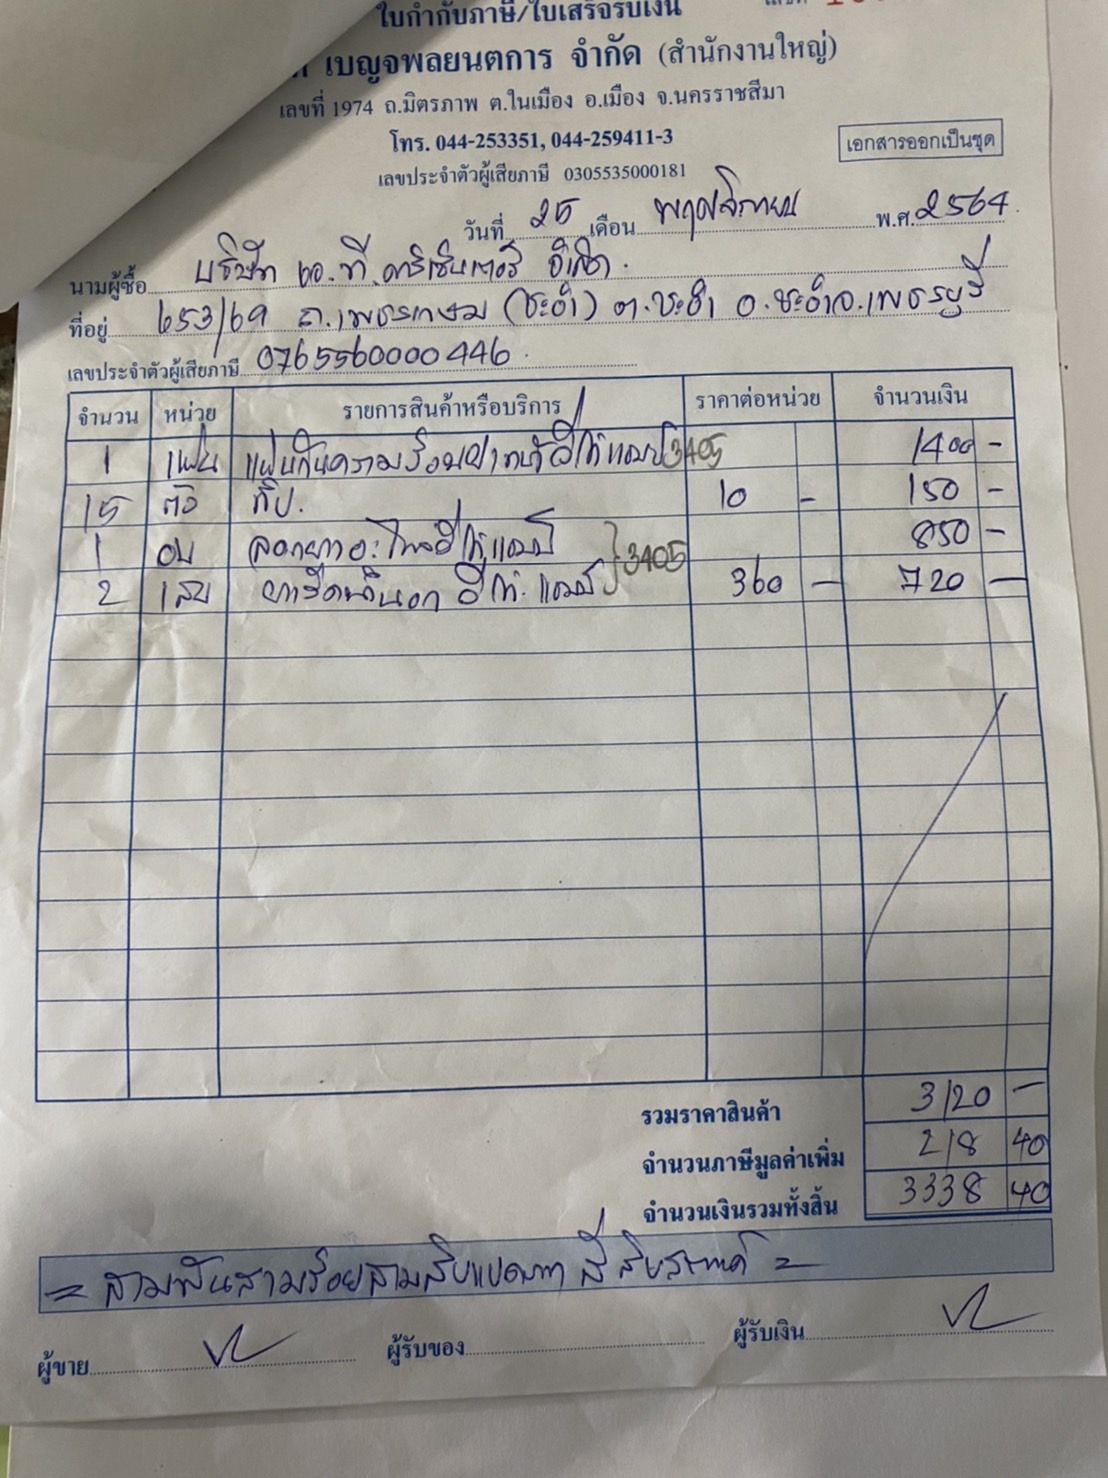 ใบกำกับภาษี/ใบเสร็จรับเงิน
เบญจพลยนตการ จำกัด (สำนักงานใหญ่)
เลขที่ 1974 ถ.มิตรภาพ ต.ในเมือง อ.เมือง จ.นครราชสีมา
โทร. 044-253351, 044-259411-3
เอกสารออกเป็นชุด
เลขประจำตัวผู้เสียภาษี 0305535000181
วันที่ 25 เดือน พฤศจิกายน พ.ศ. 2564
นามผู้ซื้อ บริษัท เอ.ที. จำกัด.
ที่อยู่ 653/69 ถ.เพชรเกษม (ชะอำ) ต.ชะอำ อ.ชะอำ จ.เพชรบุรี
เลขประจำตัวผู้เสียภาษี 0765560000446
จำนวน หน่วย รายการสินค้าหรือบริการ ราคาต่อหน่วย จำนวนเงิน
1 แผ่น แผ่นกันความร้อน 3405 1400 -
15 ตัว กิ๊ป. 10 - 150 -
1 850 -
2 เส้น 3405 360 - 720 -
รวมราคาสินค้า 3120 -
จำนวนภาษีมูลค่าเพิ่ม 218 40
จำนวนเงินรวมทั้งสิ้น 3338 40
= สามพันสามร้อยสามสิบแปดบาทสี่สิบสตางค์ =
ผู้ขาย ผู้รับของ ผู้รับเงิน